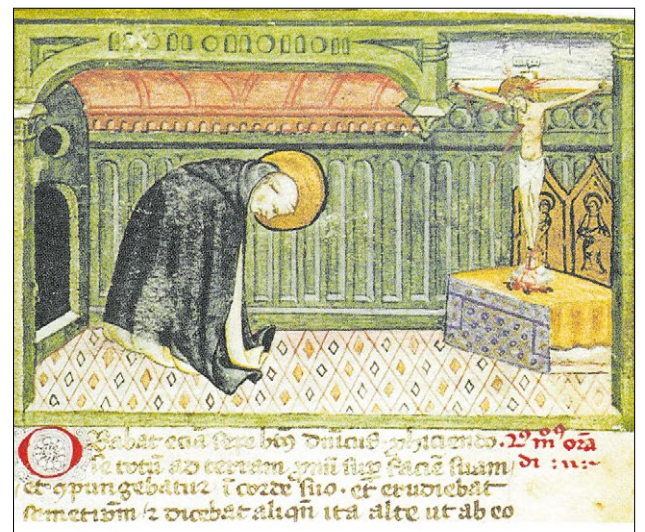 Orabat etiā sepe btūs dn̄icus ꝓhiciendo .2ꝰ mꝰ orā
se totū ad terram ꝓnū sup̄ faciē suam di :II:~
et ꝯpungebatur ī corde suo · et erudiebat
semetipm̄ ⁊ dicebat aliqn̄ ita alte ut ab eo